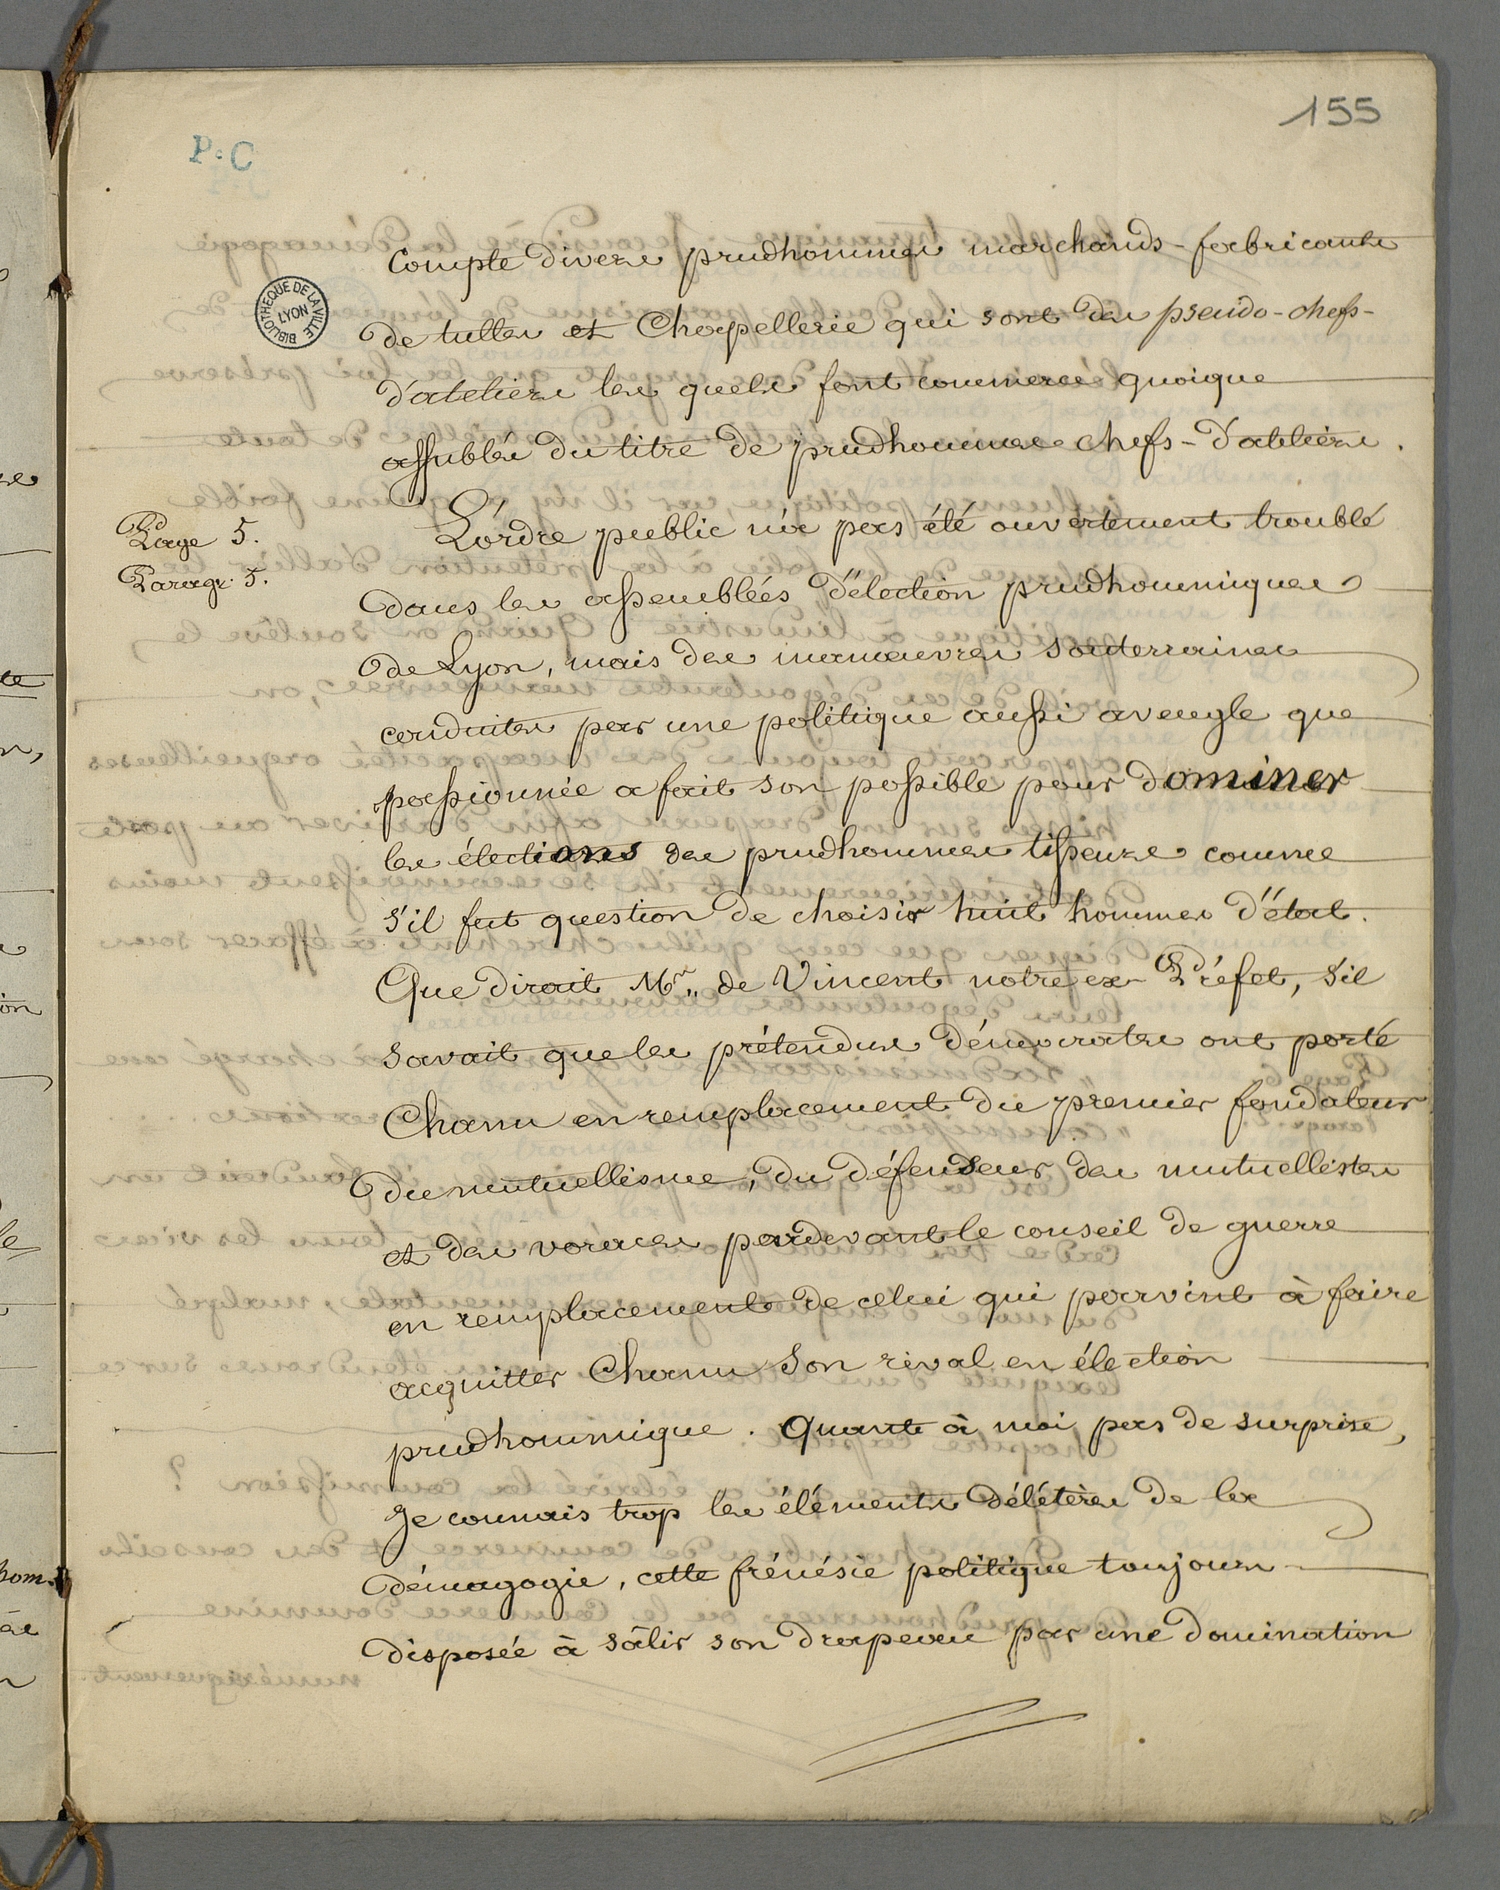 155
P.C
BIBLIOTHEQUE DE LA VILLE LYON
compte divers prudhommes marchands-fabricants
de tulles et Chapellerie qui sont des pseudo-chefs-
d'ateliers les quels font commerce quoique
affublés du titre de prudhommes chefs-d'ateliers.
Page 5.
Paragr. 5.
L'ordre public n'a pas été ouvertement troublé
dans les assemblées d'élection prudhommiques
de Lyon, mais des manœuvres souterraines
conduites par une politique aussi aveugle que
passionnée a fait son possible pour dominer
les élections des prudhommes tisseurs comme
s'il fut question de choisir huit hommes d'état.
Que dirait Mr. de Vincent notre ex-Préfet, s'il
savait que les prétendus démocrates ont porté
Chanu en remplacement du premier fondateur
du mutuellisme, du défenseur des mutuellistes
et des voraces pardevant le conseil de guerre
en remplacement de celui qui parvint à faire
acquitter Chanu son rival en élection
prudhommique. Quant à moi pas de surprise,
Je connais trop les éléments délétères de la
démagogie, cette frénésie politique toujours
disposée à sâlir son drapeau par une domination